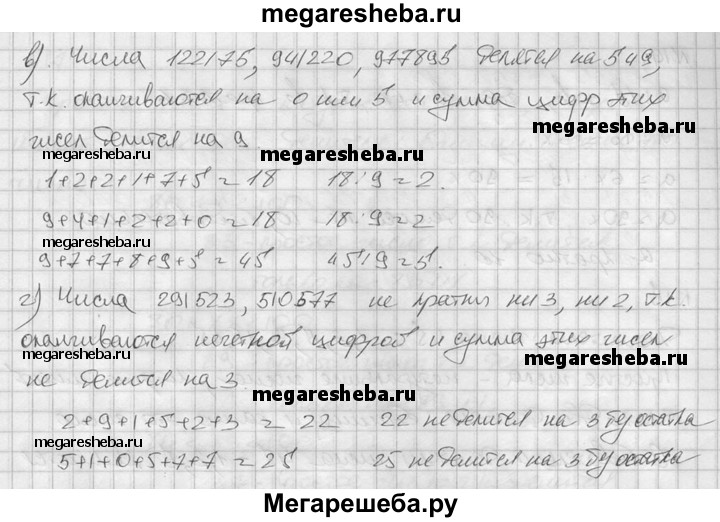 megaresheba.ru
в). Числа 122175, 941220, 977895 делятся на 5 и 9,
т.к. оканчиваются на 0 или 5 и сумма цифр этих
megaresheba.ru
чисел делится на 9
megaresheba.ru
1+2+2+1+7+5=18 18:9=2.
megaresheba.ru
9+4+1+2+2+0=18 18:9=2
megaresheba.ru
9+7+7+8+9+5=45 45:9=5.
megaresheba.ru
г) Числа 291523, 510577 не кратны ни 3, ни 2, т.к.
оканчиваются нечетной цифрой и сумма этих чисел
megaresheba.ru
не делится на 3
megaresheba.ru
2+9+1+5+2+3=22 22 не делится на 3 без остатка
megaresheba.ru
5+1+0+5+7+7=25 25 не делится на 3 без остатка
megaresheba.ru
Мегарешеба.ру